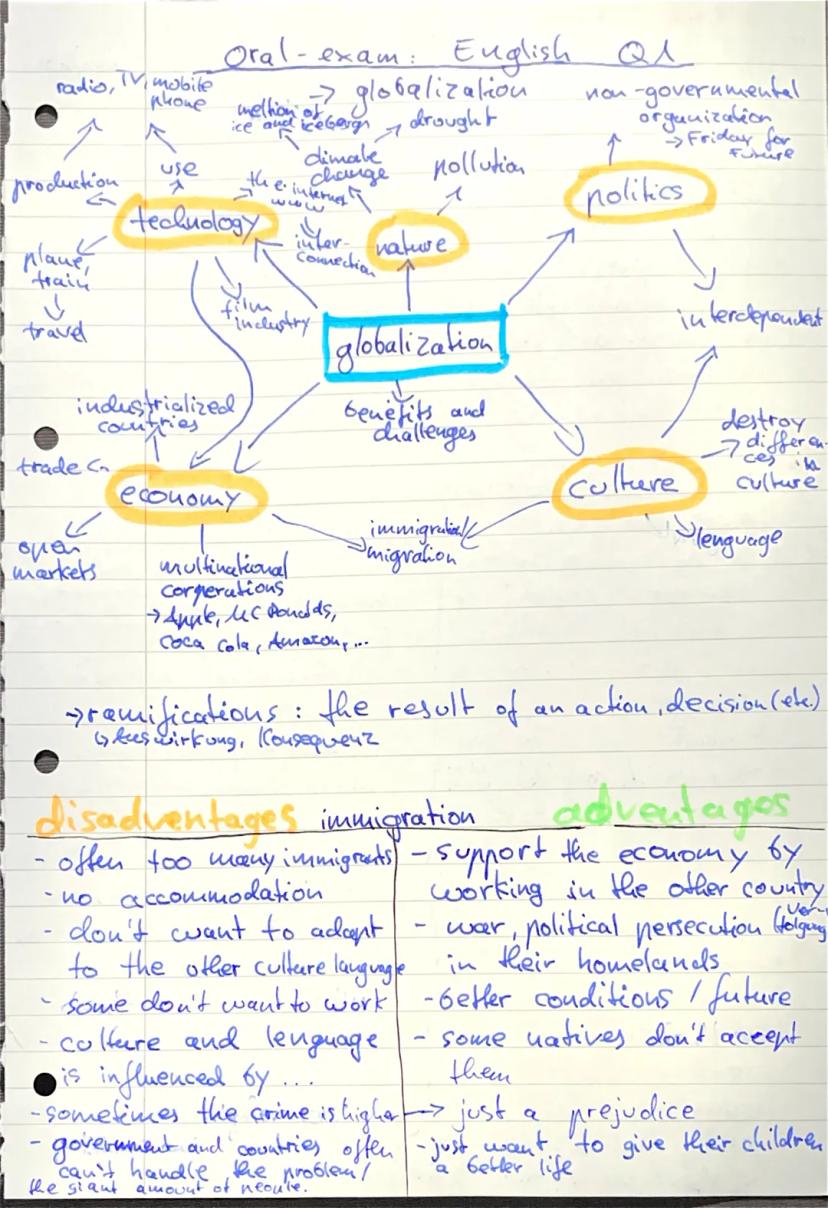 Oral-exam: English Q1
→ globalization
radio, TV, mobile
phone
production
use
technology
plane,
train
travel
the internet
www
inter-
connection
film
industry
melting of
ice and icebergs
drought
climate
change
pollution
nature
non-governmental
organization
→ Friday for
Future
politics
interdependent
globalization
benefits and
challenges
industrialized
countries
trade
economy
open
markets
multinational
corperations
→ Apple, MC Donalds,
Coca Cola, Amazon, ...
immigration/
migration
culture
destroy
differen-
ces in
culture
lenguage
→ ramifications: the result of an action, decision (etc.)
↳ Auswirkung, Konsequenz
disadventages immigration adventages
- often too many immigrants
- no accommodation
- don't want to adapt
to the other culture lenguage
- some don't want to work
- culture and lenguage
is influenced by ...
- sometimes the crime is higher
- government and countries often
can't handle the problem/
the giant amount of people.
- support the economy by
working in the other country
- war, political persecution (Ver-
folgung
in their homelands
- better conditions / future
- some natives don't accept
them
→ just a prejudice
- just want to give their children
a better life